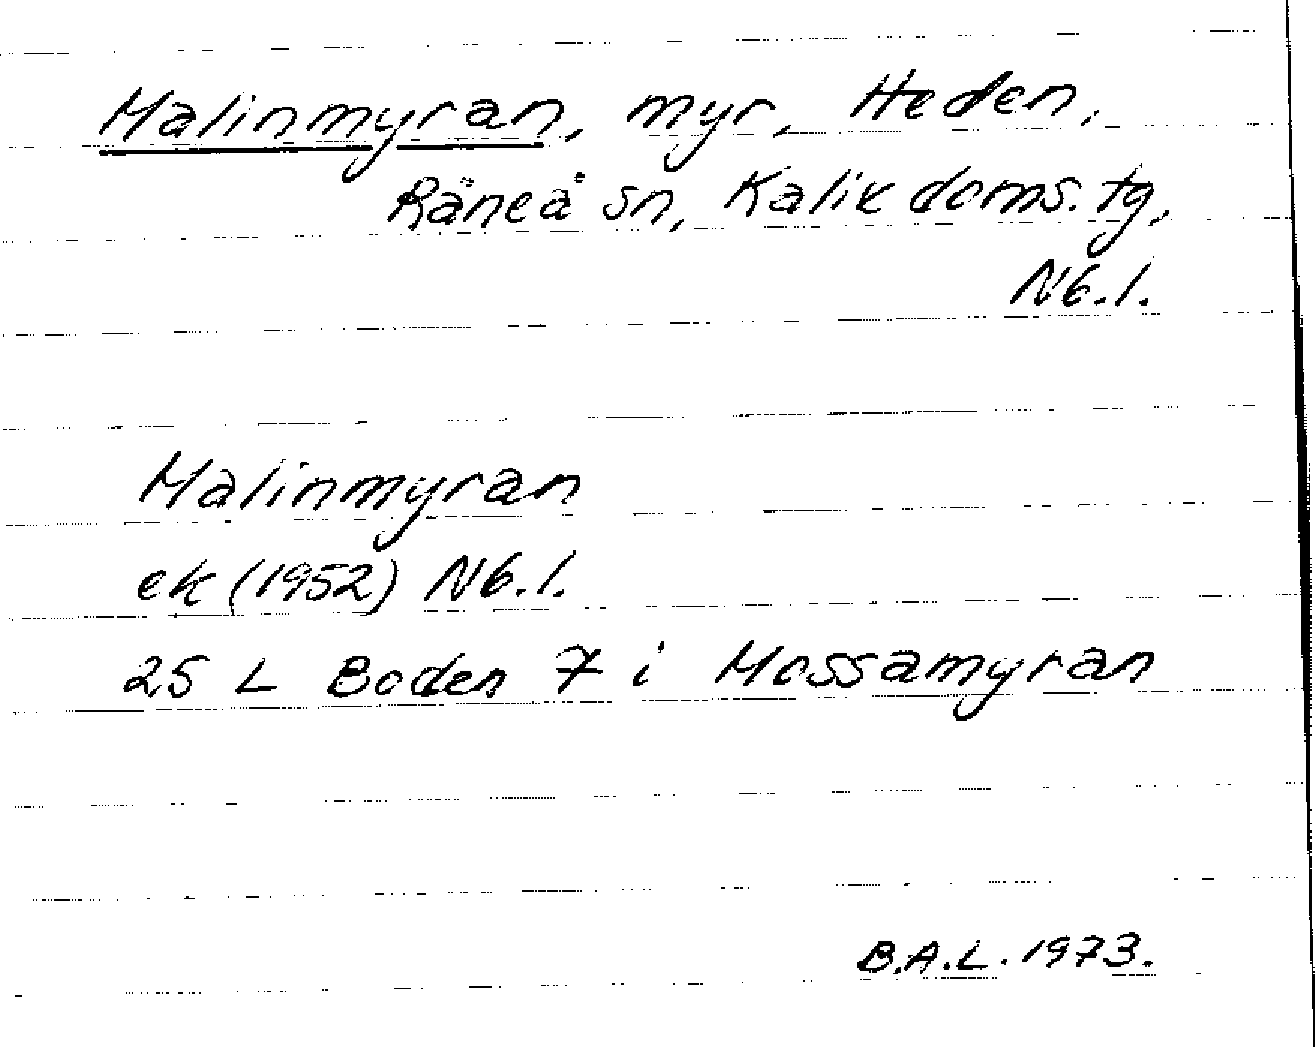 Malinmyran, myr, Heden,
Råneå sn, Kalix doms. tg,
Nb.l.
Malinmyran
ek (1952) Nb.l.
25 L Boden 7 i Mossamyran
B.A.L. 1973.